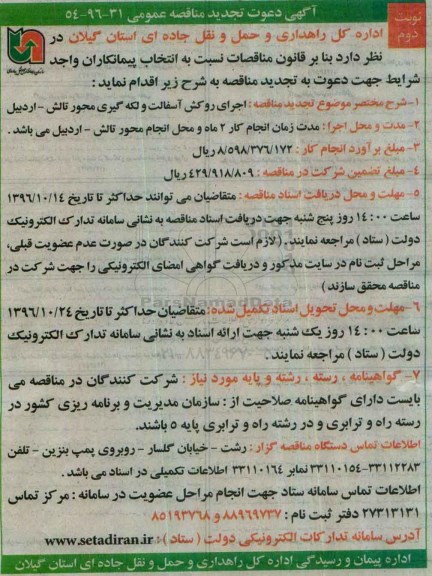 نوبت دوم
آگهی دعوت تجدید مناقصه عمومی ۳۱-۹۶-۵۴
اداره کل راهداری و حمل و نقل جاده ای استان گیلان در
نظر دارد بنا بر قانون مناقصات نسبت به انتخاب پیمانکاران واجد
شرایط جهت دعوت به تجدید مناقصه به شرح زیر اقدام نماید :
۱-شرح مختصر موضوع تجدید مناقصه : اجرای روکش آسفالت و لکه گیری محور تالش - اردبیل
۲- مدت و محل اجرا : مدت زمان انجام کار ۲ ماه و محل انجام محور تالش - اردبیل می باشد .
۳- مبلغ بر آورد انجام کار : ۸/۵۹۸/۳۷۶/۱۷۲ ریال
۴- مبلغ تضمین شرکت در مناقصه : ۴۲۹/۹۱۸/۸۰۹ ریال
۵- مهلت و محل دریافت اسناد مناقصه : متقاضیان می توانند حداکثر تا تاریخ ۱۳۹۶/۱۰/۱۴
ساعت ۱۴:۰۰ روز پنج شنبه جهت دریافت اسناد مناقصه به نشانی سامانه تدارک الکترونیک
دولت ( ستاد ) مراجعه نمایند . ( لازم است شرکت کنندگان در صورت عدم عضویت قبلی،
مراحل ثبت نام در سایت مذکور و دریافت گواهی امضای الکترونیکی را جهت شرکت در
مناقصه محقق سازند )
۶-مهلت و محل تحویل اسناد تکمیل شده : متقاضیان حداکثر تا تاریخ ۱۳۹۶/۱۰/۲۴
ساعت ۱۴:۰۰ روز یک شنبه جهت ارائه اسناد به نشانی سامانه تدارک الکترونیک
دولت ( ستاد ) مراجعه نمایند .
۷- گواهینامه ، رسته ، رشته و پایه مورد نیاز : شرکت کنندگان در مناقصه می
بایست دارای گواهینامه صلاحیت از : سازمان مدیریت و برنامه ریزی کشور در
رسته راه و ترابری و در رشته راه و ترابری پایه ۵ باشند.
اطلاعات تماس دستگاه مناقصه گزار : رشت - خیابان گلسار - روبروی پمپ بنزین - تلفن
۳۳۱۱۲۲۸۳-۳۳۱۱۰۱۵۴ نمابر ۳۳۱۱۰۱۶۴ اطلاعات تکمیلی در اسناد می باشد .
اطلاعات تماس سامانه ستاد جهت انجام مراحل عضویت در سامانه : مرکز تماس
۲۷۳۱۳۱۳۱ دفتر ثبت نام : ۸۸۹۶۹۷۳۷ و ۸۵۱۹۳۷۶۸
آدرس سامانه تدارکات الکترونیکی دولت ( ستاد ) : www.setadiran.ir
اداره پیمان و رسیدگی اداره کل راهداری و حمل و نقل جاده ای استان گیلان